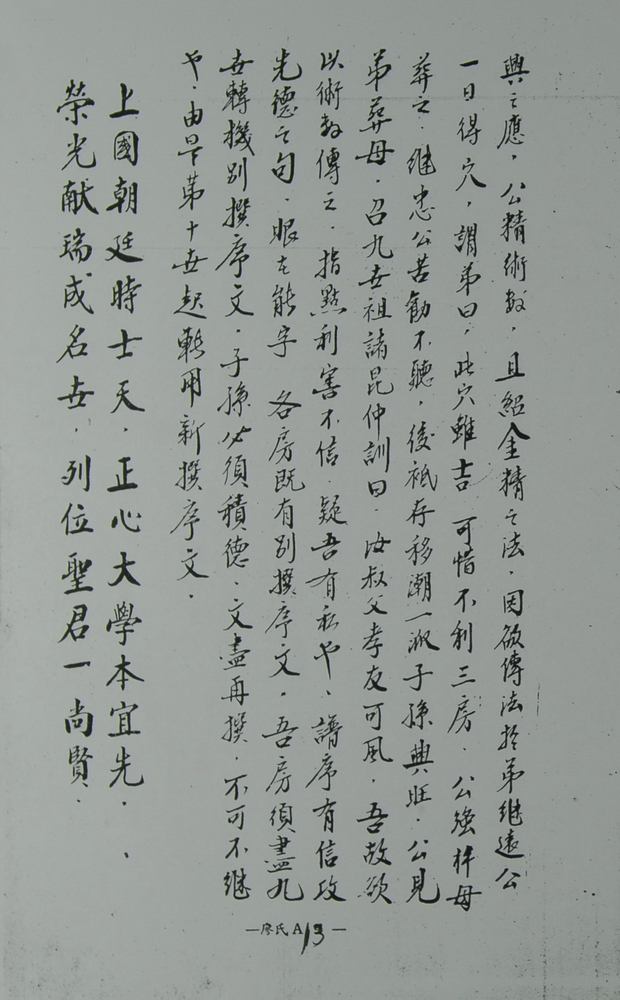 興之應，公精術数，且紹金精之法．因欲傳法於弟继遠公
一日得穴，謂弟曰，此穴雖吉 可惜不利三房．公強柩母
葬之．继忠公苦勸不聽，後衹存移潮一派子孫興旺．公見
弟葬母．召九世祖諸昆仲訓曰．汝叔父孝友可風．吾故欲
以術数傳之．指點利害不信．疑吾有私也、譜序有信攷
先德之句．眼在能字 各房既有別撰序文．吾房須盡九
世轉機別撰序文．子孫必須積德．文盡再撰．不可不継
也．由是苐十世起転用新撰序文．
上國朝廷時士天．正心大學本宜先．
榮光献瑞成名世．列位聖君一尚賢．
—廖氏A13—